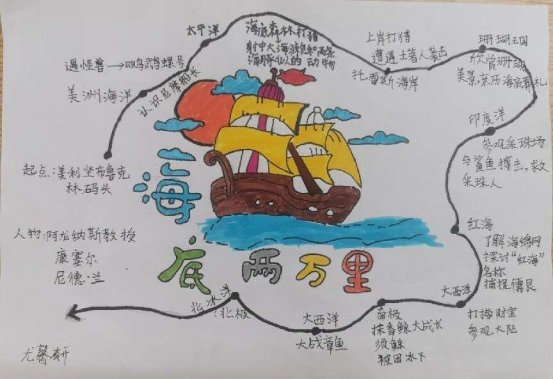 太平洋
遇怪兽→鹦鹉螺号
美洲海洋
认识尼摩船长
起点:美利坚布鲁克
林码头
人物:阿龙纳斯教授
康塞尔
尼德·兰
海底森林打猎
射中大海
的动物
上岸打猎
遭遇土著人袭击
托雷斯海岸
珊瑚王国
欣赏珊瑚
美景,亲历海底葬礼
印度洋
参观采珠场
与鲨鱼搏击,救
采珠人
红海
了解海绵网
探讨“红海”
名称
捕捉儒艮
大西洋
打捞财宝
参观大陆
南极
抹香鲸大战长
须鲸
被困冰下
大西洋
大战章鱼
北冰洋
北极
海
底两万里